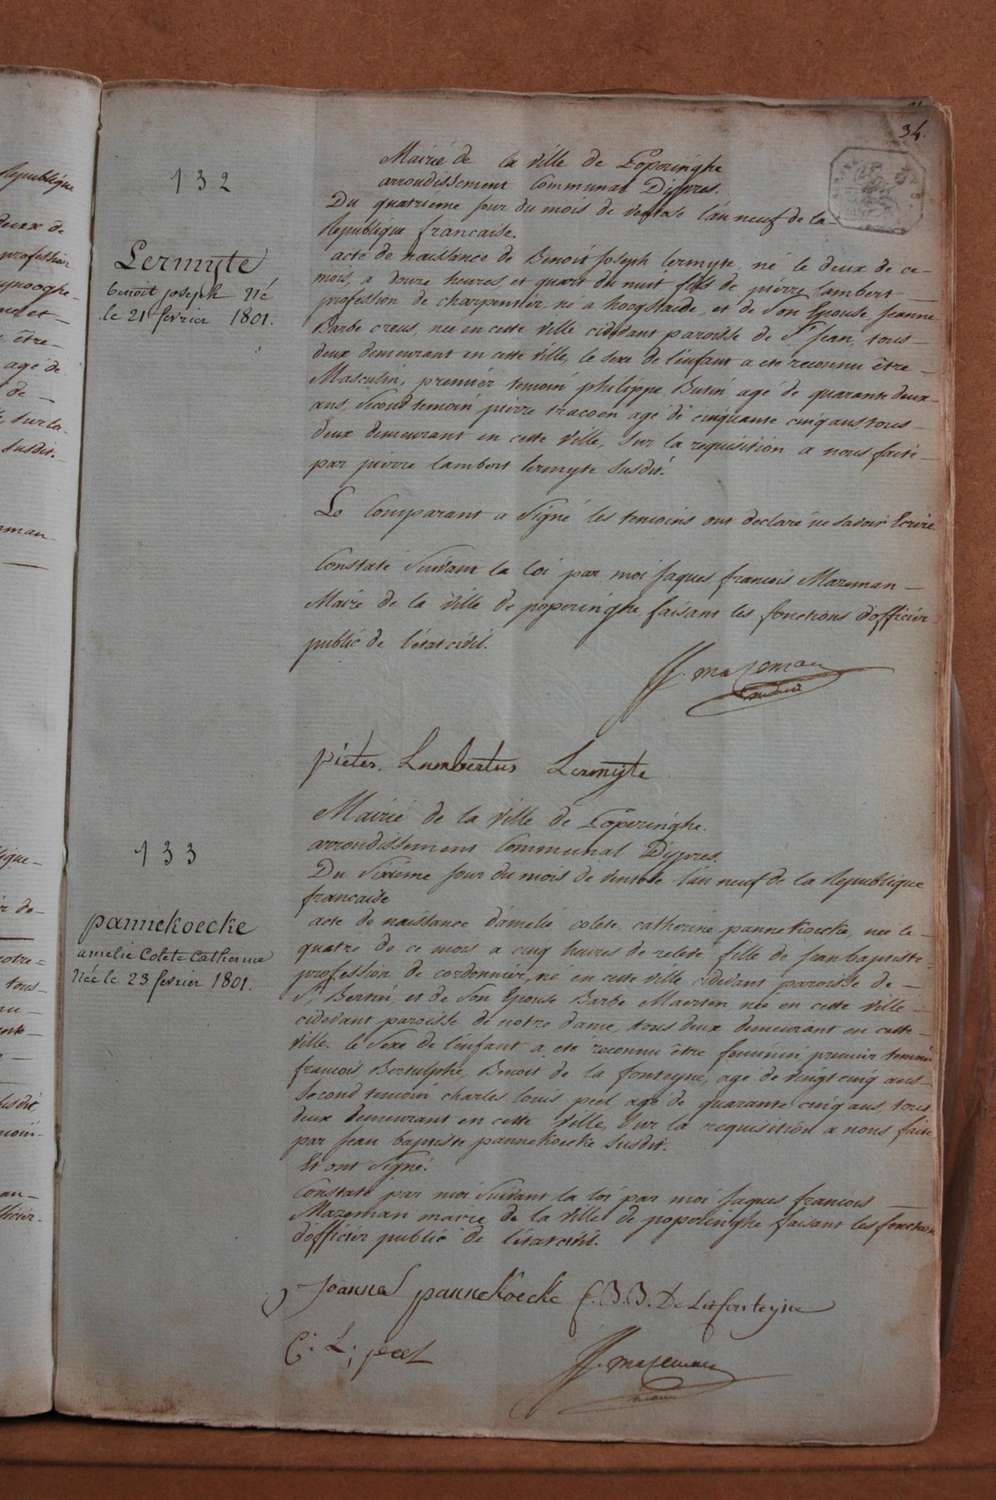 34.
132
Mairié de la ville de Poperinghe
arrondissement Communal D'ypres.
Du quatrieme jour du mois de ventose l'an neuf de la
Republique francaise.
Lermyte
benoit joseph né
le 21 fevrier 1801.
acte de naissance de Benoit Joseph Lermyte, né le deux de ce
mois, a douze heures et quart du nuit fils de pierre lambert
profession de charpentier né a hoogstaede, et de son Epouse Jeanne
Barbe creus, née en cette ville cidevant paroisse de St Jean, tous
deux demeurant en cette ville, le sexe de l'enfant a ete reconnu être
Masculin, premier temoin philippe Butin agé de quarante deux
ans, second temoin pierre tracoen agé de cinquante cinq ans tous
deux demeurant en cette ville, sur la requisition a nous faite
par pierre lambert lermyte susdit.
Le Comparant a signé les temoins ont declaré ne savoir Ecrire
Constaté suivant la loi par moi Jaques francois Mazeman
Maire de la ville de poperinghe faisant les fonctions d'officier
public de l'etat civil.
J.f. mazeman
maire
pieter Lambertus Lermyte
133
Mairié de la ville de Poperinghe.
arrondissement Communal D'ypres.
Du sixieme jour du mois de ventose l'an neuf de la Republique
francaise
pannekoecke
amelie Colete Catherine
née le 23 fevrier 1801.
acte de naissance d'amelie, colete, catherine pannekoecke, née le
quatre de ce mois a cinq heures de relevé fille de jean baptiste
profession de cordonnier, né en cette ville cidevant paroisse de
St Bertin, et de son Epouse Barbe Maerten née en cette ville
cidevant paroisse de notre dame, tous deux demeurant en cette
ville. le sexe de l'enfant a ete reconnu être feminin premier temoin
francois Bertulphe, Benoit de la fonteyne, age de vingt cinq ans
second temoin charles louis peel agé de quarante cinq ans, tous
deux demeurant en cette ville, sur la requisition a nous faite
par Jean baptiste pannekoecke susdit.
Et ont signé.
Constaté par moi suivant la loi par moi Jaques francois
Mazeman maire de la ville de poperinghe faisant les fonctions
d'officier public de l'etat civil.
Joannes pannekoecke f. B. B. De Lafonteyne
C: L: peel
J.f. mazeman
maire